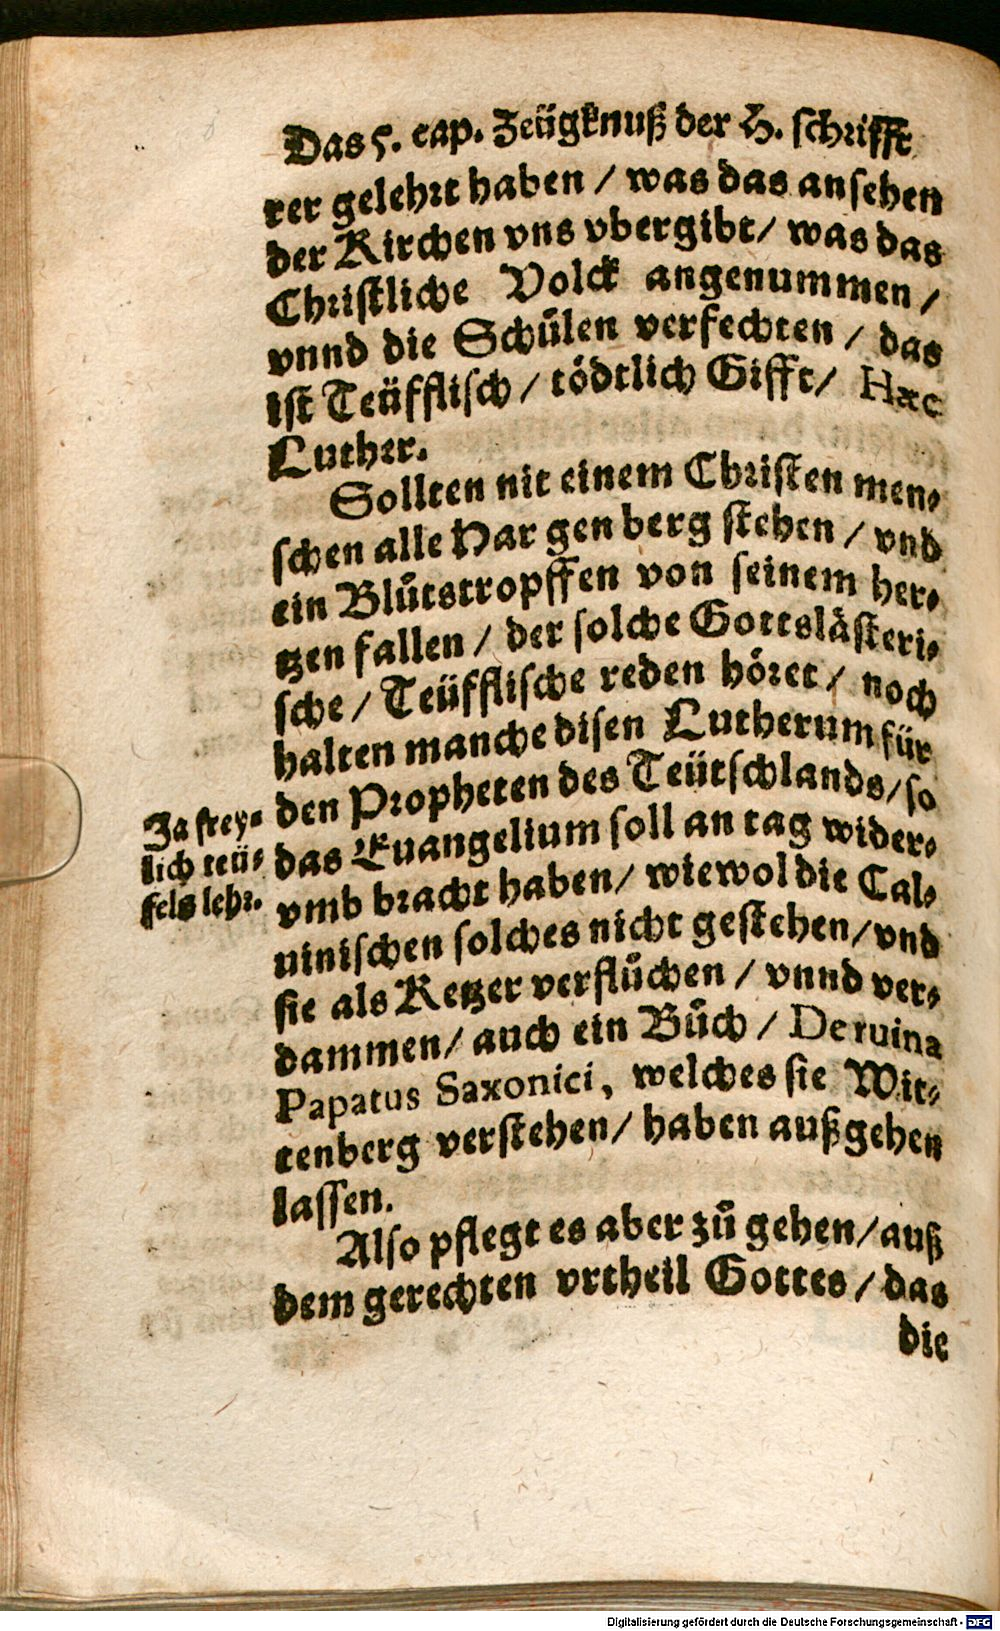 Das 5. cap. Zeügknuß der H. schrifft
rer gelehrt haben / was das ansehen
der Kirchen vns vbergibt / was das
Christliche Volck angenummen /
vnnd die Schůlen verfechten / das
ist Teüfflisch / tödtlich Gifft / Hæc
Luther.
Sollten nit einem Christen men-
schen alle Har gen berg stehen / vnd
ein Blůtstropffen von seinem her-
tzen fallen / der solche Gottslästeri-
sche / Teüfflische reden höret / noch
halten manche disen Lutherum für
den Propheten des Teütschlands / so
das Euangelium soll an tag wider-
vmb bracht haben / wiewol die Cal-
uinischen solches nicht gestehen / vnd
sie als Ketzer verflůchen / vnnd ver-
dammen / auch ein Bůch / De ruina
Papatus Saxonici, welches sie Wit-
tenberg verstehen / haben außgehen
lassen.
Also pflegt es aber zů gehen / auß
dem gerechten vrtheil Gottes / das
die
Ja frey-
lich teü-
fels lehr.
Digitalisierung gefördert durch die Deutsche Forschungsgemeinschaft - DFG